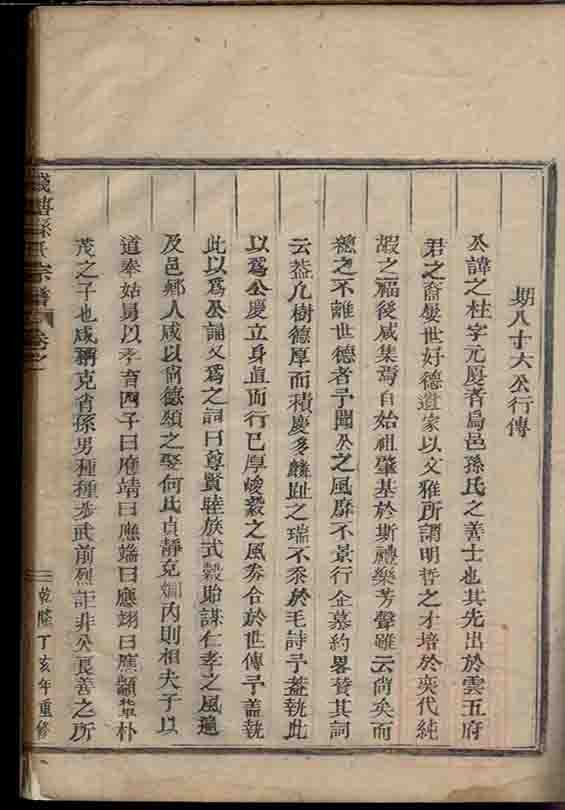 期八十六公行傳
公諱之柱字元廈者烏邑孫氏之善士也其先出於雲五府
君之裔屢世好德遺家以文雅所謂明哲之才培於奕代純
嘏之福後咸集焉自始祖肇基於斯禮樂芳聲雖云尚矣而
總之不離世德者予聞公之風靡不景行企慕約畧贊其詞
云蓋凡樹德厚而積慶多麟趾之瑞不忝於毛詩予蓋執此
以爲公慶立身直而行已厚峻穀之風券合於世傳予蓋執
此以爲公誦又爲之詞曰尊賢睦族式穀貽謀仁孝之風適
及邑鄰人咸以尚德頌之娶何氏貞靜克嫻內則相夫子以
道奉姑舅以孝育四子曰應靖曰應端曰應翊曰應顓輩朴
茂之子也咸稱克肖孫男種種步武前烈詎非公長善之所
孫氏宗譜 卷之一
乾隆丁亥年重修